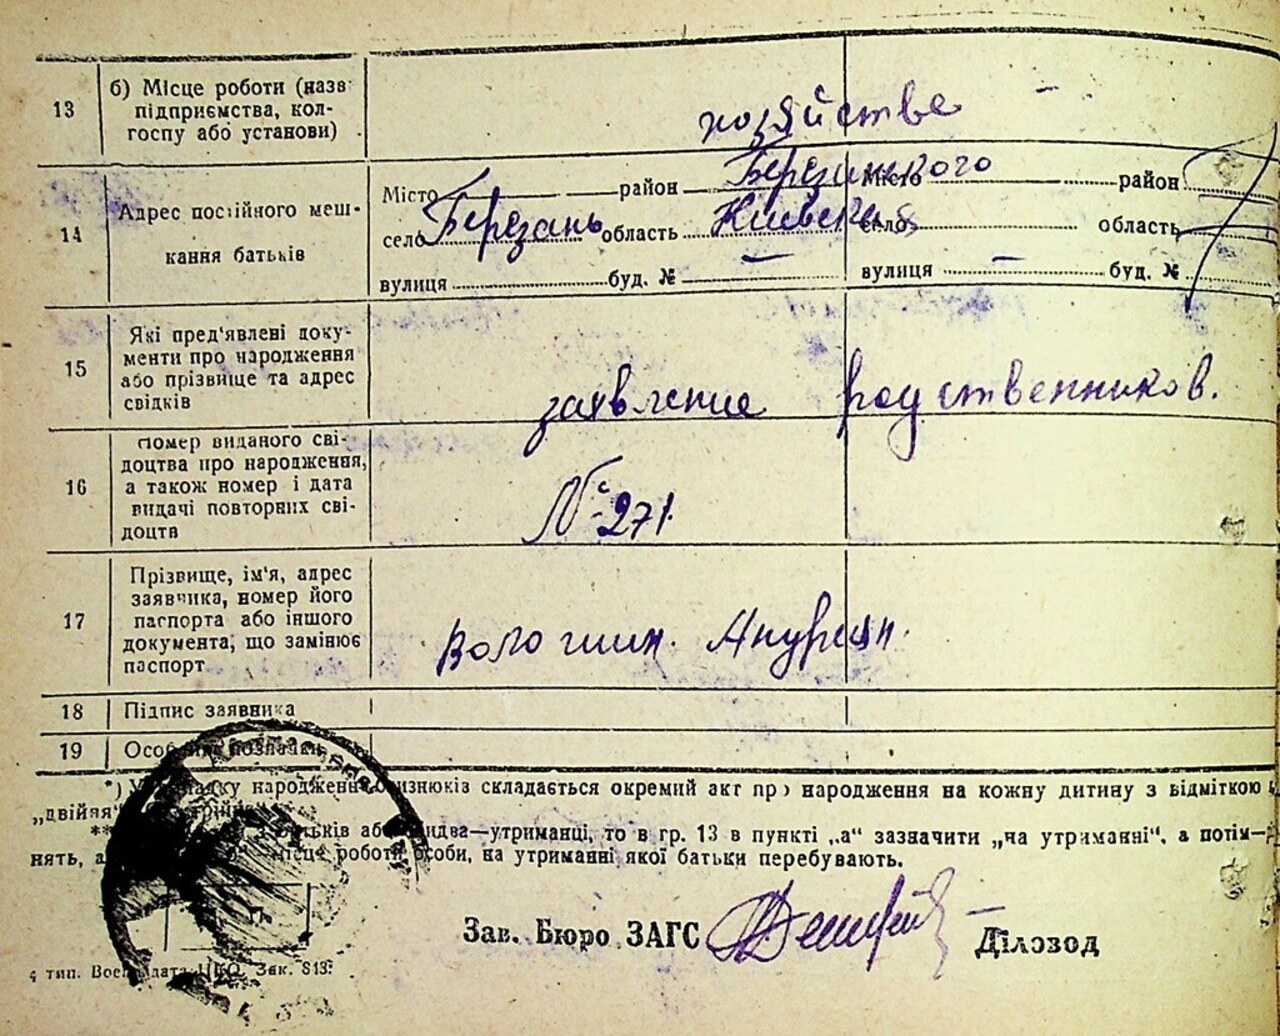 13
б) Місце роботи (назв
підприємства, кол-
госпу або установи)
хозяйстве
14
Адрес постійного меш-
кання батьків
Місто район Березанского
село Березань область Киевская
вулиця — буд. № —
Місто район
село область
вулиця — буд. №
15
Які пред'явлені доку-
менти про народження
або прізвище та адрес
свідків
заявление родственников.
16
Номер виданого сві-
доцтва про народження,
а також номер і дата
видачі повторних сві-
доцтв
№ 271.
17
Прізвище, ім'я, адрес
заявника, номер його
паспорта або іншого
документа, що замінює
паспорт
Волошин. Андреян.
18
Підпис заявника
19
Особливі позначки
*) У випадку народження близнюків складається окремий акт про народження на кожну дитину з відміткою
„двійня“
батьків або обидва—утриманці, то в гр. 13 в пункті „а“ зазначити „на утриманні“, а потім—
нять, а місце роботи особи, на утриманні якої батьки перебувають.
Зав. Бюро ЗАГС Діловод
4 тип. Воениздата НКО. Зак. 813.